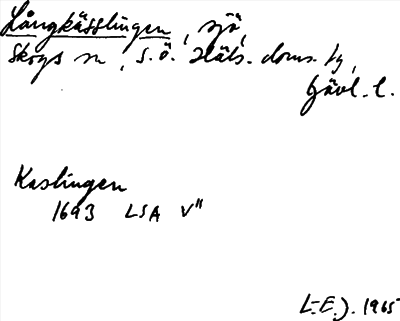 Långkässlingen, sjö,
Skogs sn, S.Ö. Häls. doms. tg,
Gävl. l.
Kaslingen
1693 LSA V"
L-E.J. 1965